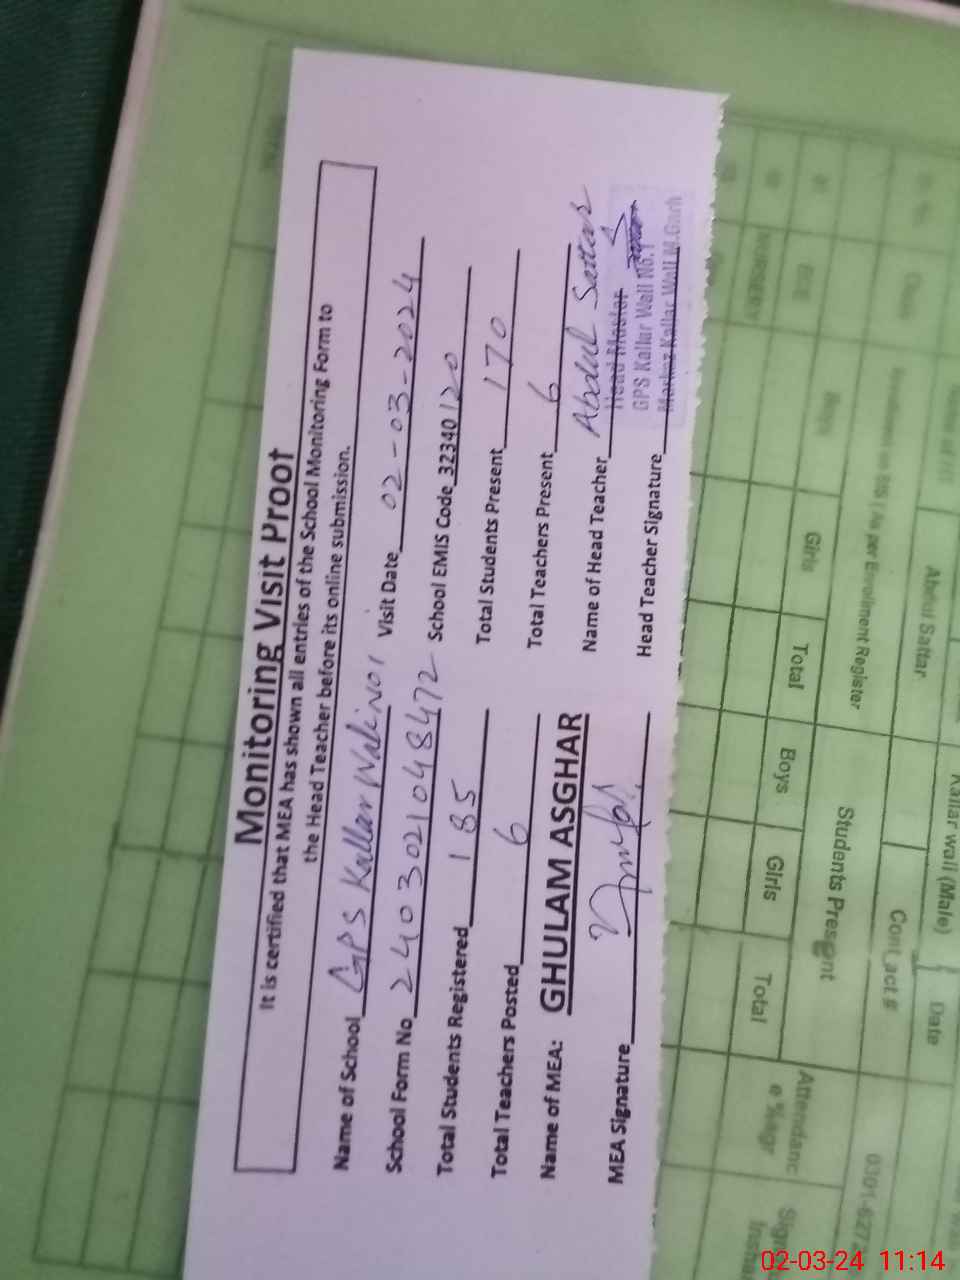 Monitoring Visit Proof
It is certified that MEA has shown all entries of the School Monitoring Form to
the Head Teacher before its online submission.
Name of School GPS Kallar Wali NO1 Visit Date 02-03-2024
School Form No 2403021048472 School EMIS Code 32340120
Total Students Registered 185 Total Students Present 170
Total Teachers Posted 6 Total Teachers Present 6
Name of MEA: GHULAM ASGHAR Name of Head Teacher Abdul Sattar
MEA Signature Head Teacher Signature
Head Master
GPS Kallar Wali No.1
Markaz Kallar Wali M.Garh
Kallar wali (Male) Date
Abdul Sattar Contact #
0301-627
as per Enrolment Register Students Present Attendanc
e %age
Boys Girls Total Boys Girls Total
02-03-24 11:14